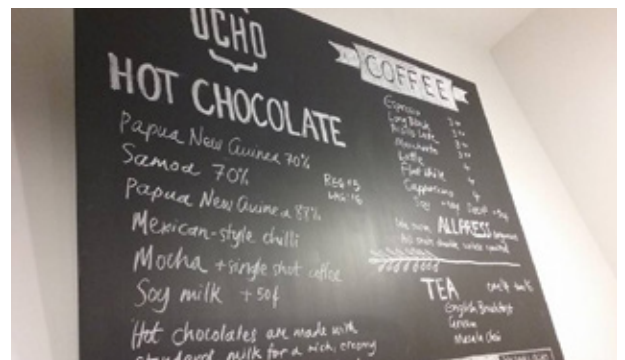 OCHO
HOT CHOCOLATE
Papua New Guinea 70%
Samoa 70%
REG $5
LAG $6
Papua New Guinea 88%
Mexican-style chilli
Mocha + single shot coffee
Soy milk + 50¢
Hot chocolates are made with
standard milk for a rich, creamy
COFFEE
Espresso
Long Black
Macchiato
Latte 4
Flat white 4
Cappuccino 4
Soy
ALLPRESS
TEA
English Breakfast
Green
Masala chai